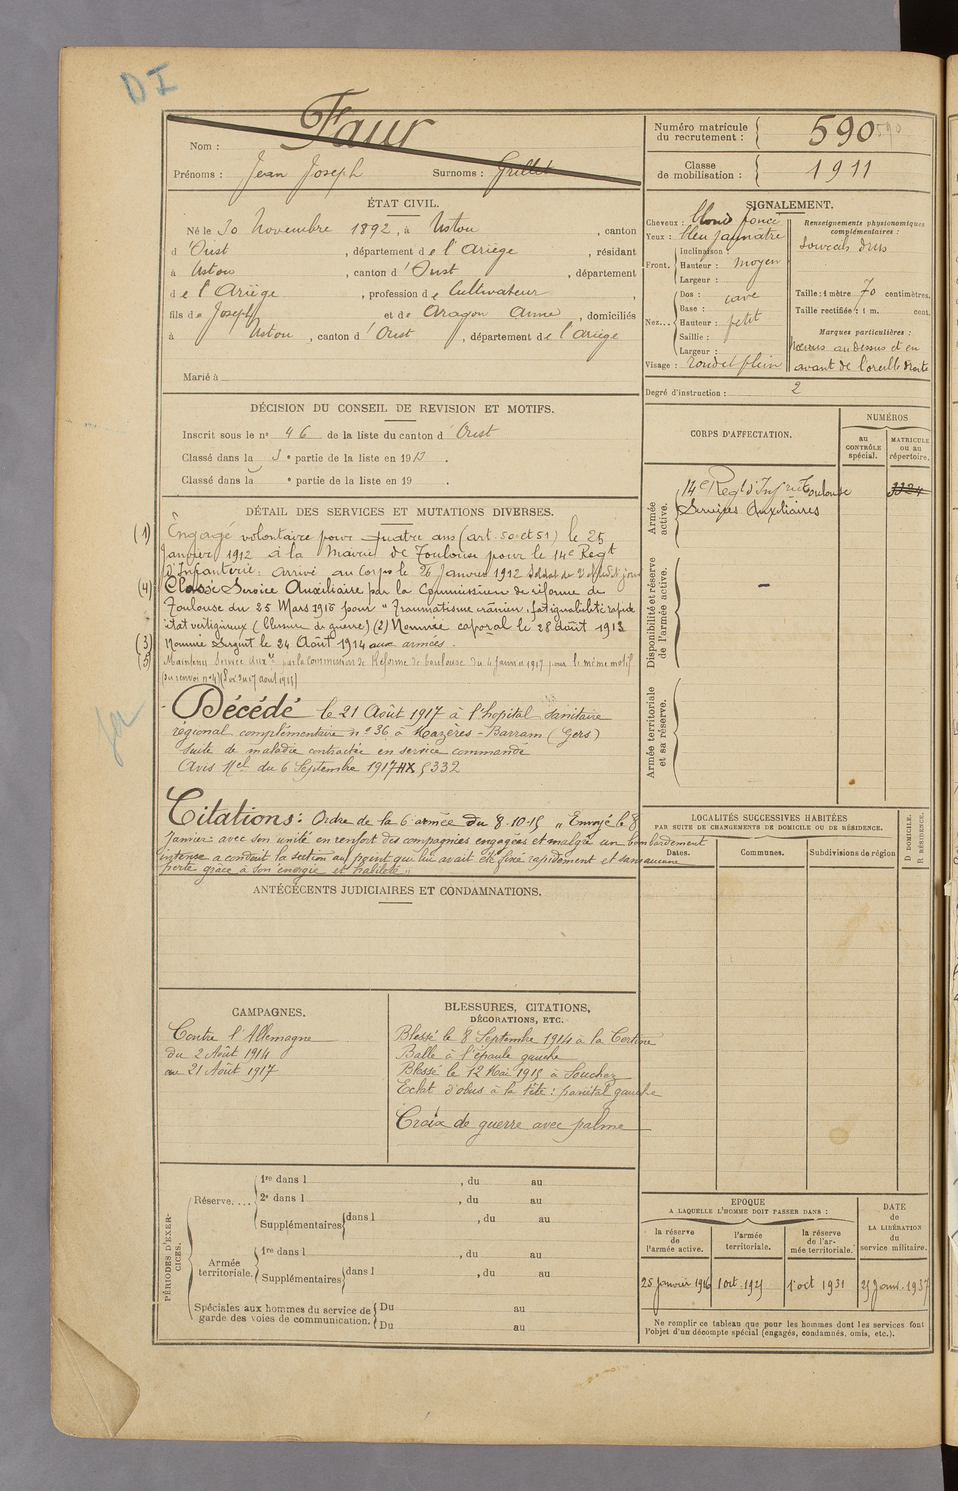 D I
Nom : Faur
Prénoms : Jean Joseph Surnoms : Grillet
Numéro matricule du recrutement : 590 590
Classe de mobilisation : 1911
ÉTAT CIVIL.
Né le 30 Novembre 1892, à Ustou , canton
d'Oust , département de l'Ariège , résidant
à Ustou , canton d'Oust , département
de l'Ariège , profession de Cultivateur ,
fils de Joseph et de Aragon Anne , domiciliés
à Ustou , canton d'Oust , département de l'Ariège
Marié à
SIGNALEMENT.
Cheveux : blond foncé
Yeux : bleu jaunatre
Front. Inclinaison :
Hauteur : moyen
Largeur :
Nez... Dos : cave
Base :
Hauteur : petit
Saillie :
Largeur :
Visage : rond et plein
Renseignements physionomiques complémentaires :
Sourcils drus
Taille : 1 mètre 70 centimètres.
Taille rectifiée : 1 m. cent.
Marques particulières :
Noevus au dessus et en
avant de l'oreille droite
Degré d'instruction : 2
DÉCISION DU CONSEIL DE REVISION ET MOTIFS.
Inscrit sous le n° 46 de la liste du canton d'Oust
Classé dans la 3e partie de la liste en 1913 .
Classé dans la e partie de la liste en 19 .
CORPS D'AFFECTATION.
NUMÉROS
au CONTRÔLE spécial.
MATRICULE ou au répertoire.
Armée active.
14e Regt d'Infrie Toulouse 3324
Services Auxiliaires
Disponibilité et réserve de l'armée active.
Armée territoriale et sa réserve.
DÉTAIL DES SERVICES ET MUTATIONS DIVERSES.
(1) Engagé volontaire pour quatre ans (art. 50 et 51) le 25
Janvier 1912 à la Mairie de Toulouse pour le 14e Regt
d'Infanterie : arrivé au Corps le 26 Janvier 1912 Soldat de 2e cl. dudit jour
(4) Classé Service Auxiliaire par la Commission de réforme de
Toulouse du 25 Mars 1916 pour "Traumatisme crânien, fatiguabilité rapide
état vertigineux (blessure de guerre) (2) Nommé caporal le 28 Août 1913
(3) Nommé Sergent le 24 Août 1914 aux armées.
(5) Maintenu Service Auxre par la Commission de Réforme de Toulouse du 4 Janvier 1917 pour le même motif
du renvoi n° 4) (Loi du 17 août 1915)
Décédé le 21 Août 1917 à l'hopital sanitaire
régional complémentaire n° 36 à Mazères-Barram (Gers)
suite de maladie contractée en service commandé
Avis Mel du 6 Septembre 1917 HX 5332
Citations : Ordre de la 6e armée du 8-10-15 "Envoyé le 8
Janvier avec son unité en renfort des compagnies engagées et malgré un bombardement
intense a conduit la section au point qui lui avait été fixé rapidement et sans aucune
perte grâce à son énergie et habileté"
ANTÉCÉDENTS JUDICIAIRES ET CONDAMNATIONS.
LOCALITÉS SUCCESSIVES HABITÉES
PAR SUITE DE CHANGEMENTS DE DOMICILE OU DE RÉSIDENCE.
Dates. Communes. Subdivisions de région
D DOMICILE.
R RÉSIDENCE.
CAMPAGNES.
Contre l'Allemagne
du 2 Août 1914
au 21 Août 1917
BLESSURES, CITATIONS,
DÉCORATIONS, ETC.
Blessé le 8 Septembre 1914 à la Certine
Balle à l'épaule gauche
Blessé le 12 Mai 1915 à Souchez
Eclat d'obus à la tête : pariétal gauche
Croix de guerre avec palme
PÉRIODES D'EXERCICES.
Réserve.... 1re dans l , du au
2e dans l , du au
Supplémentaires dans l , du au
Armée territoriale. 1re dans l , du au
Supplémentaires dans l , du au
Spéciales aux hommes du service de garde des voies de communication. Du au
Du au
EPOQUE
A LAQUELLE L'HOMME DOIT PASSER DANS :
la réserve de l'armée active.
l'armée territoriale.
la réserve de l'armée territoriale.
DATE de LA LIBÉRATION du service militaire.
25 Janvier 1916 1 oct. 1925 1 oct 1931 25 Janv. 1937
Ne remplir ce tableau que pour les hommes dont les services font
l'objet d'un décompte spécial (engagés, condamnés, omis, etc.).